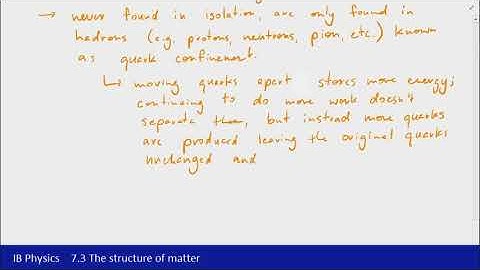 → never found in isolation, are only found in
hadrons (e.g. protons, neutrons, pion, etc.) known
as quark confinement.
↳ moving quarks apart stores more energy;
continuing to do more work doesn't
separate them, but instead more quarks
are produced leaving the original quarks
unchanged and
IB Physics 7.3 The structure of matter